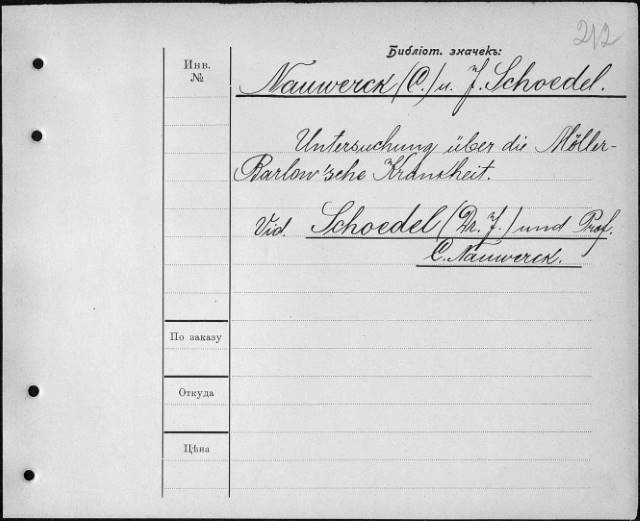 212
Библіот. значекъ:
Инв.
№
Nauwerck (C.) u. J. Schoedel.
Untersuchung über die Möller-
Barlow'sche Krankheit.
Vid. Schoedel (Dr. J.) und Prof.
C. Nauwerck.
По заказу
Откуда
Цѣна